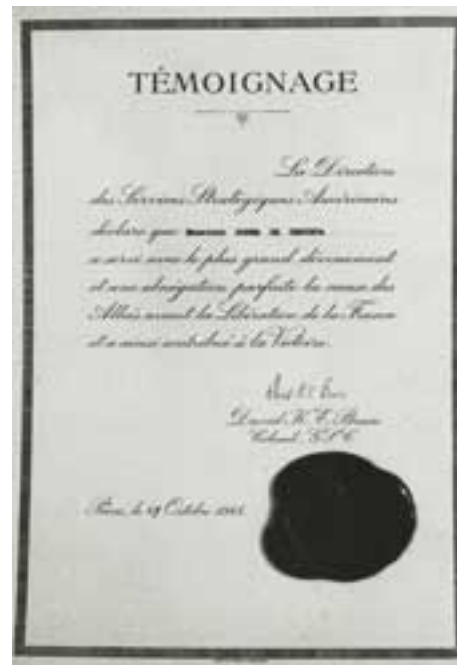 TÉMOIGNAGE
La Direction
des Services Stratégiques Américains
déclare que
a servi avec le plus grand dévouement
et une abnégation parfaite la cause des
Alliés avant la Libération de la France
et a ainsi contribué à la Victoire.
David K. E. Bruce
Colonel, G.S.C.
Paris, le Octobre